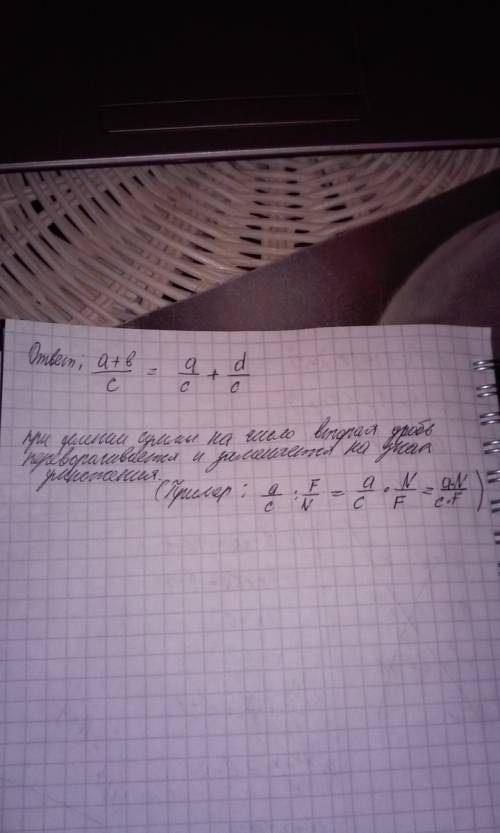 Ответ: a+в/c = a/c + d/c
при делении суммы на число вторая дробь
переворачивается и заменяется на знак
умножения.
(Пример: a/c : F/N = a/c · N/F = a·N/c·F)